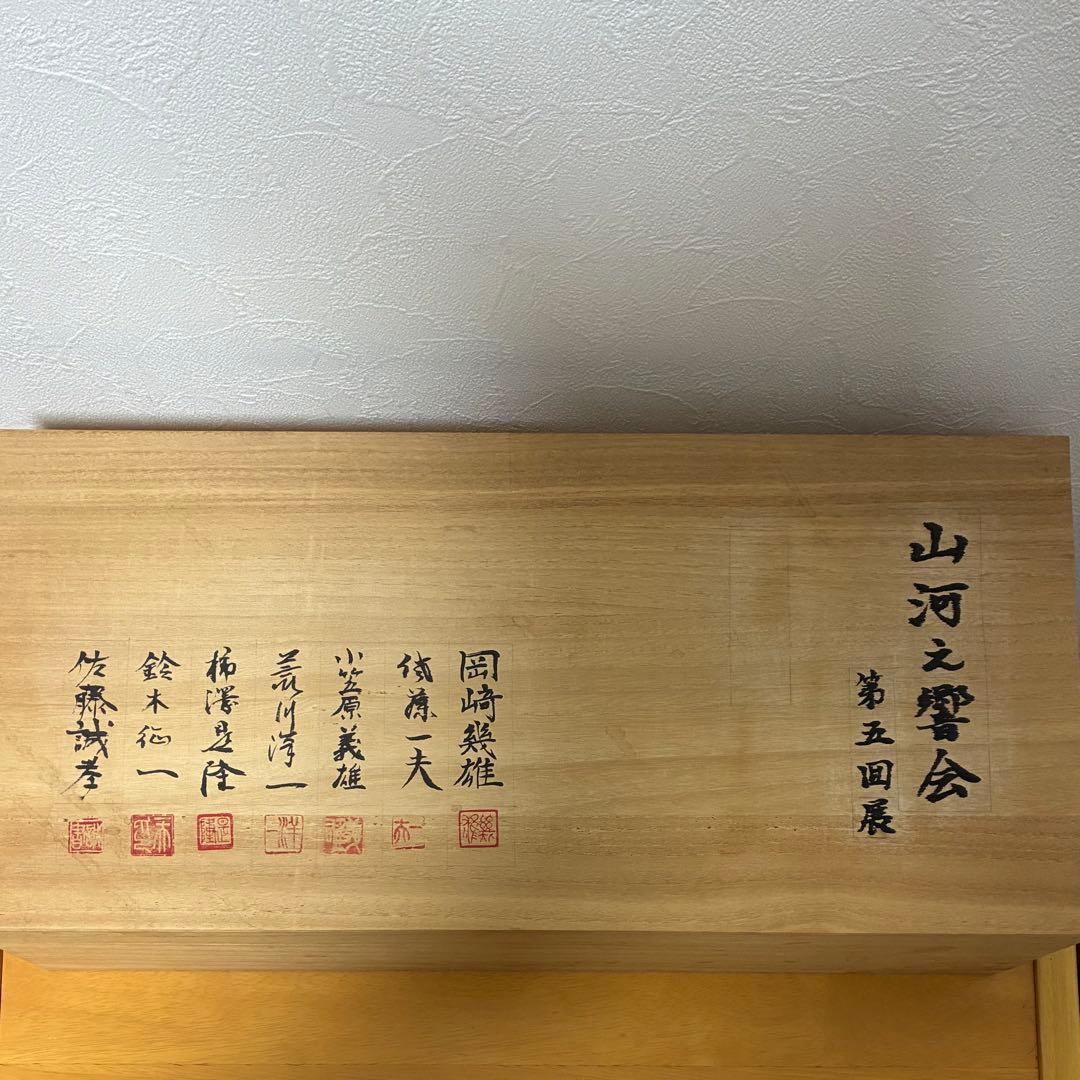 山河之響会
第五回展
岡﨑幾雄
佐藤一夫
小笠原義雄
荒川洋一
梯澤是隆
鈴木征一
佐藤誠孝